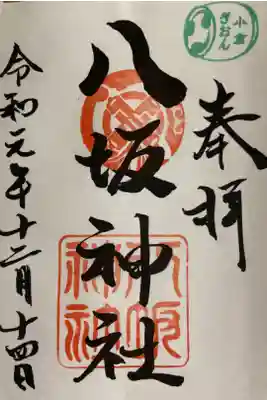 小倉
ぎおん
奉拝
八坂神社
八坂神社
令和元年十二月十四日